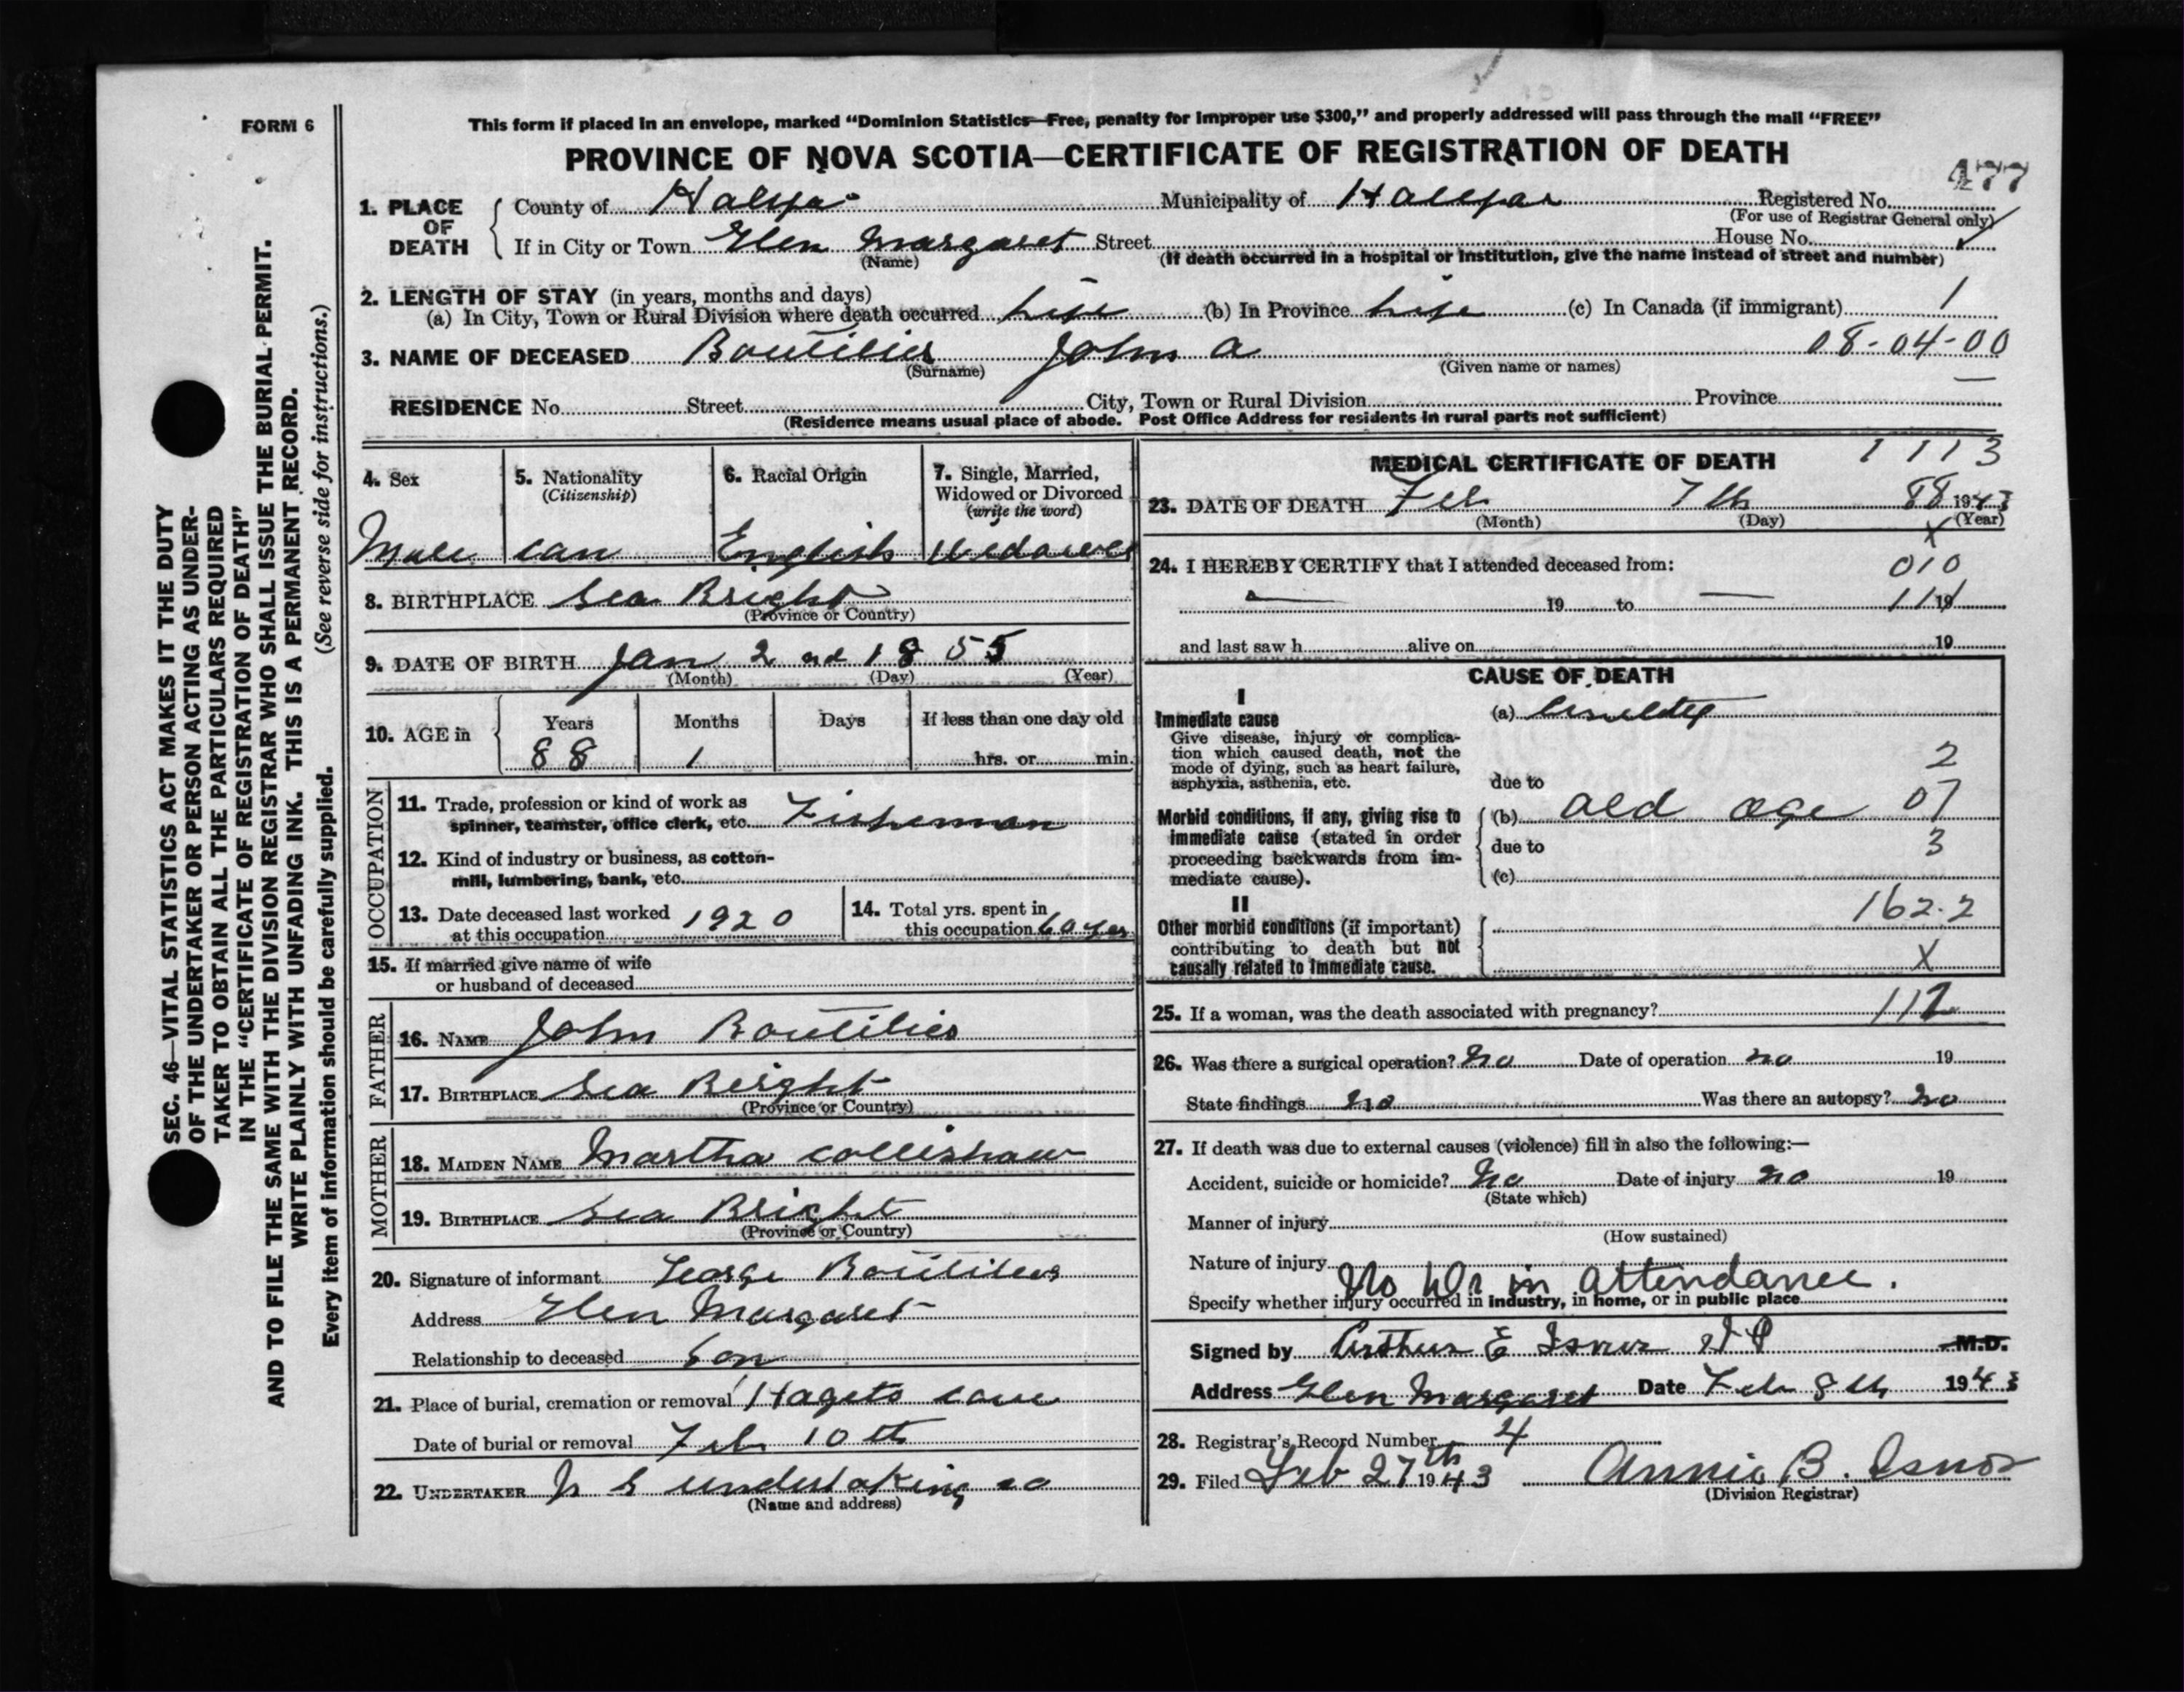 FORM 6
This form if placed in an envelope, marked “Dominion Statistics—Free, penalty for improper use $300,” and properly addressed will pass through the mail “FREE”
PROVINCE OF NOVA SCOTIA—CERTIFICATE OF REGISTRATION OF DEATH
477
1. PLACE OF DEATH
County of Halifax Municipality of Halifax Registered No.
(For use of Registrar General only)
If in City or Town Glen Margaret Street House No.
(Name) (If death occurred in a hospital or institution, give the name instead of street and number)
2. LENGTH OF STAY (in years, months and days)
(a) In City, Town or Rural Division where death occurred life (b) In Province life (c) In Canada (if immigrant) 1
3. NAME OF DECEASED Boutilier John A 08-04-00
(Surname) (Given name or names)
RESIDENCE No. Street City, Town or Rural Division Province
(Residence means usual place of abode. Post Office Address for residents in rural parts not sufficient)
4. Sex
Male
5. Nationality
(Citizenship)
Can
6. Racial Origin
English
7. Single, Married,
Widowed or Divorced
(write the word)
Widower
8. BIRTHPLACE Sea Bright
(Province or Country)
9. DATE OF BIRTH Jan 2nd 1855
(Month) (Day) (Year)
10. AGE in
Years Months Days If less than one day old
88 1 hrs. or min.
OCCUPATION
11. Trade, profession or kind of work as
spinner, teamster, office clerk, etc. Fisherman
12. Kind of industry or business, as cotton-
mill, lumbering, bank, etc.
13. Date deceased last worked
at this occupation 1920
14. Total yrs. spent in
this occupation 60 yrs
15. If married give name of wife
or husband of deceased
FATHER
16. NAME John Boutilier
17. BIRTHPLACE Sea Bright
(Province or Country)
MOTHER
18. MAIDEN NAME Martha Collishaw
19. BIRTHPLACE Sea Bright
(Province or Country)
20. Signature of informant George Boutilier
Address Glen Margaret
Relationship to deceased Son
21. Place of burial, cremation or removal Hagets cove
Date of burial or removal Feb 10th
22. UNDERTAKER N S undertaking co
(Name and address)
MEDICAL CERTIFICATE OF DEATH 1113
23. DATE OF DEATH Feb 7th 88 1943
(Month) (Day) (Year)
X
24. I HEREBY CERTIFY that I attended deceased from: 010
— 19 to — 111 19
and last saw h alive on 19
CAUSE OF DEATH
I
Immediate cause
Give disease, injury or complica-
tion which caused death, not the
mode of dying, such as heart failure,
asphyxia, asthenia, etc.
(a)
due to 2
Morbid conditions, if any, giving rise to
immediate cause (stated in order
proceeding backwards from im-
mediate cause).
(b) old age 07
due to 3
(c)
II
Other morbid conditions (if important)
contributing to death but not
causally related to immediate cause.
162.2
X
25. If a woman, was the death associated with pregnancy? 112
26. Was there a surgical operation? No Date of operation no 19
State findings no Was there an autopsy? no
27. If death was due to external causes (violence) fill in also the following:—
Accident, suicide or homicide? No Date of injury no 19
(State which)
Manner of injury
(How sustained)
Nature of injury
No Dr in attendance.
Specify whether injury occurred in industry, in home, or in public place
Signed by Arthur E Isnor J P M.D.
Address Glen Margaret Date Feb 8th 1943
28. Registrar's Record Number 4
29. Filed Feb 27th 1943 Annie B. Isnor
(Division Registrar)
SEC. 46—VITAL STATISTICS ACT MAKES IT THE DUTY
OF THE UNDERTAKER OR PERSON ACTING AS UNDER-
TAKER TO OBTAIN ALL THE PARTICULARS REQUIRED
IN THE “CERTIFICATE OF REGISTRATION OF DEATH”
AND TO FILE THE SAME WITH THE DIVISION REGISTRAR WHO SHALL ISSUE THE BURIAL PERMIT.
WRITE PLAINLY WITH UNFADING INK. THIS IS A PERMANENT RECORD.
Every item of information should be carefully supplied. (See reverse side for instructions.)